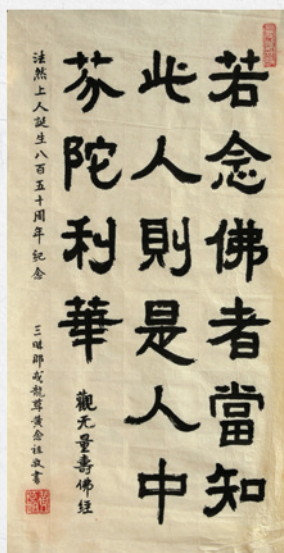 若念佛者當知
此人則是人中
芬陀利華
觀无量壽佛經
法然上人誕生八百五十周年紀念
三昧耶戒龍尊黃念祖敬書